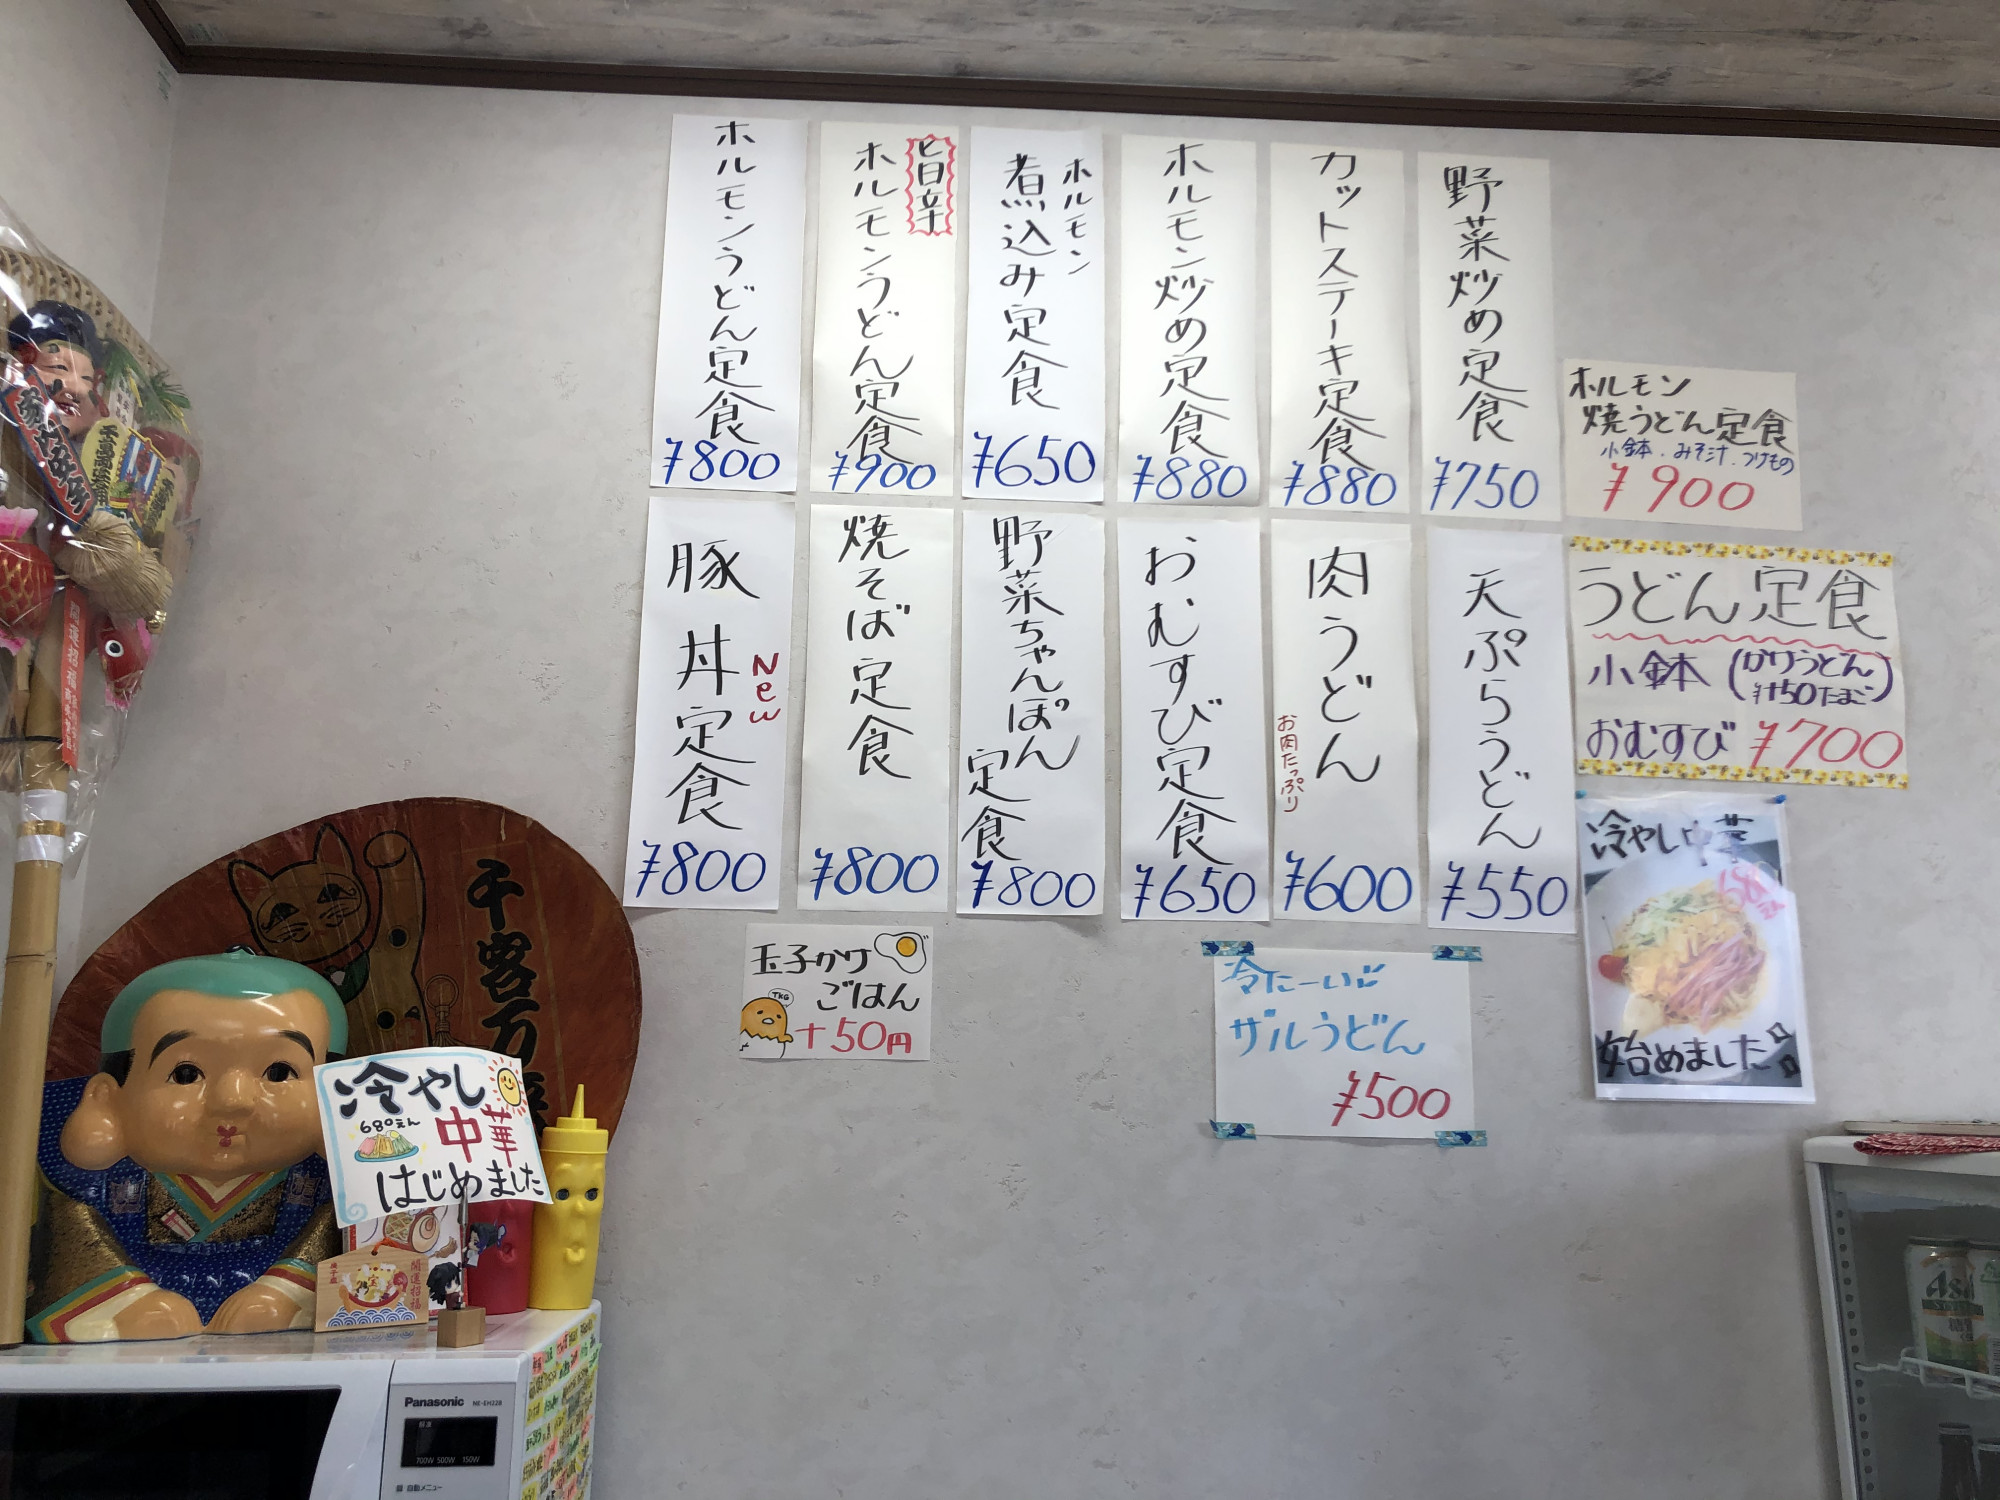 ホルモンうどん定食
¥800
旨辛
ホルモンうどん定食
¥900
ホルモン
煮込み定食
¥650
ホルモン炒め定食
¥880
カットステーキ定食
¥880
野菜炒め定食
¥750
ホルモン
焼うどん定食
小鉢.みそ汁.つけもの
¥900
豚丼定食
New
¥800
焼そば定食
¥800
野菜ちゃんぽん
定食
¥800
おむすび定食
¥650
肉うどん
お肉たっぷり
¥600
天ぷらうどん
¥550
うどん定食
小鉢(かけうどん
おむすび ¥700
玉子かけ
ごはん
TKG
+50円
冷たーい
ザルうどん
¥500
冷やし中華
始めました
千客万
冷やし
680えん
中華
はじめました
開運招福
Panasonic
NE-EH228
700W 500W 150W
自動メニュー
Asahi